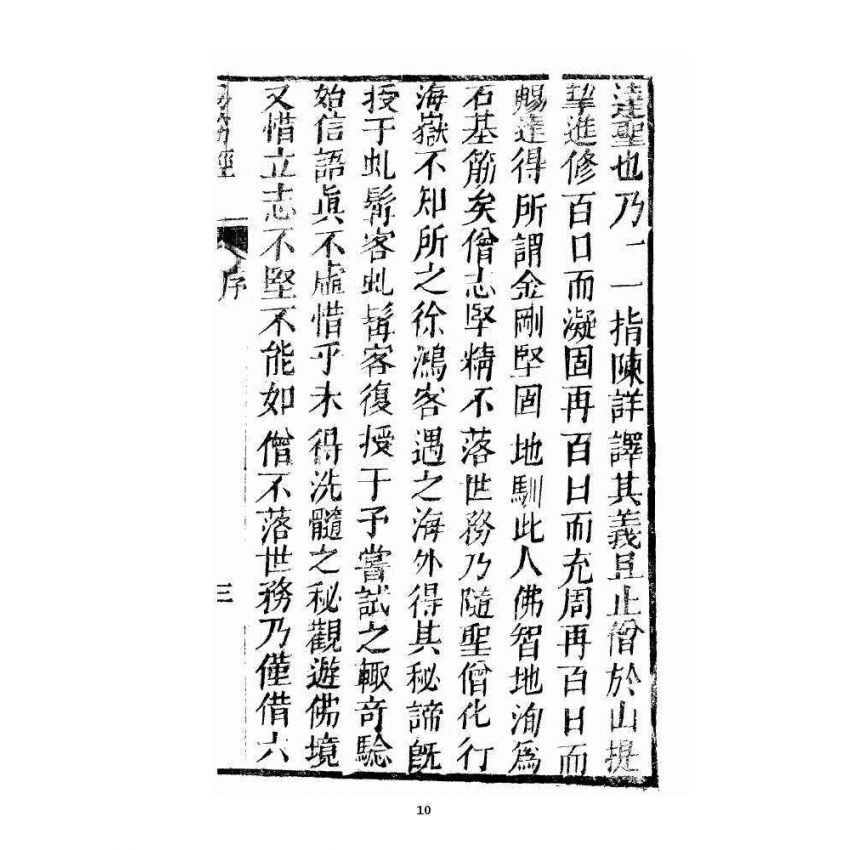 達聖也乃一一指陳詳譯其義且止僧於山提
挈進修百日而凝固再百日而充周再百日而
暢達得所謂金剛堅固地馴此人佛智地洵爲
石基筋矣僧志堅精不落世務乃隨聖僧化行
海嶽不知所之徐鴻客遇之海外得其秘諦旣
授于虬髯客虬髯客復授于予嘗試之輙奇驗
始信語眞不虛惜乎未得洗髓之秘觀遊佛境
又惜立志不堅不能如僧不落世務乃僅借六
易筋經 序 三
10